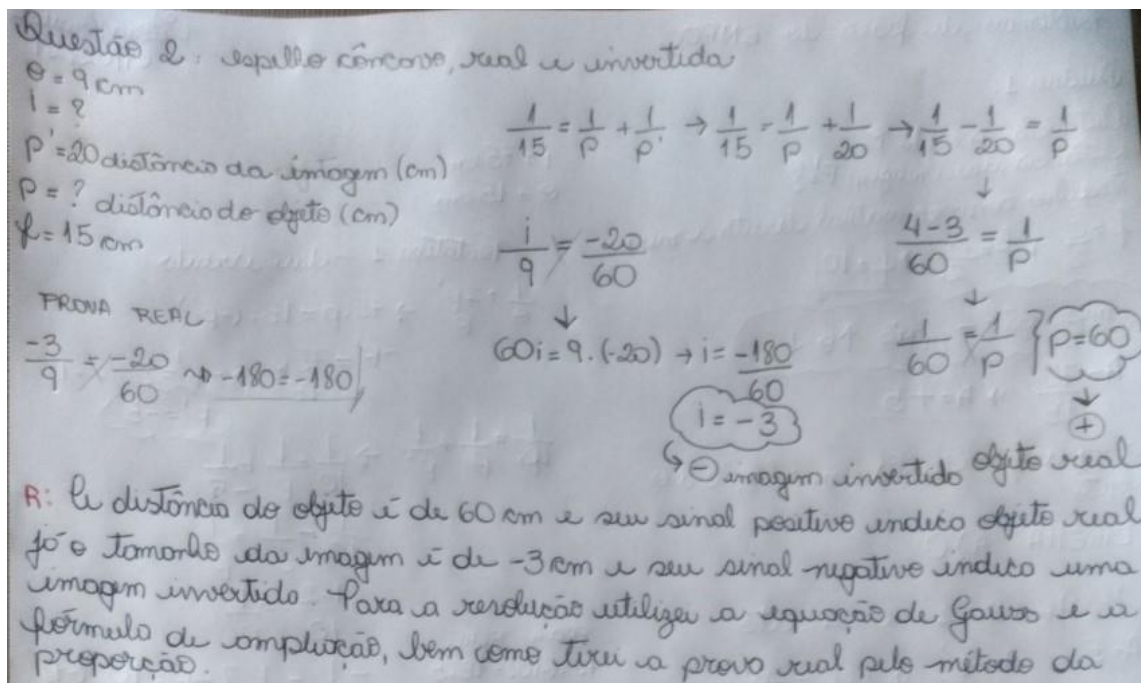 Questão 2: espelho côncavo, real e invertida
o = 9 cm
i = ?
p' = 20 distância da imagem (cm)
p = ? distância do objeto (cm)
f = 15 cm
1/15 = 1/p + 1/p' → 1/15 = 1/p + 1/20 → 1/15 - 1/20 = 1/p
↓
4-3/60 = 1/p
↓
1/60 = 1/p } p=60
↓
+
objeto real
i/9 = -20/60
↓
60i = 9.(-20) → i = -180/60
i = -3
↳ ⊖ imagem invertida
PROVA REAL
-3/9 = -20/60 ⇝ -180 = -180
R: A distância do objeto é de 60 cm e seu sinal positivo indica objeto real
já o tamanho da imagem é de -3 cm e seu sinal negativo indica uma
imagem invertida. Para a resolução utilizei a equação de Gauss e a
fórmula de ampliação, bem como tirei a prova real pelo método da
proporção.